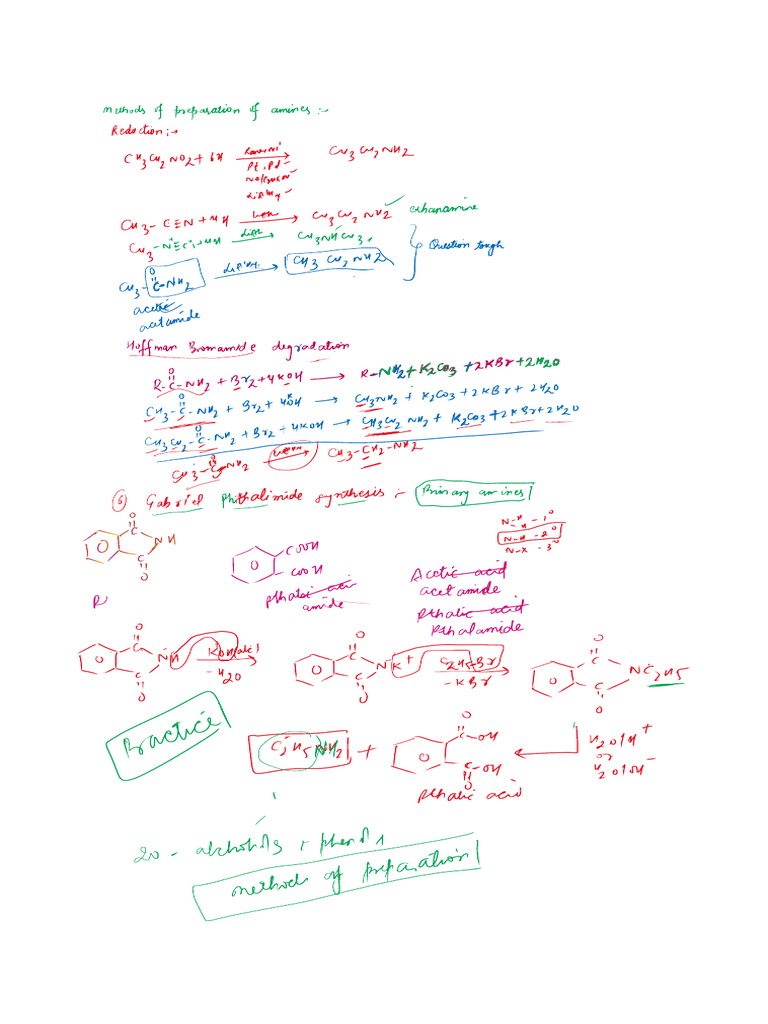 methods of preparation of amines:-
Reduction:-
CH3CH2NO2 + 6H → CH3CH2NH2
Pt, Pd
LiAlH4
CH3-C≡N + 4H → CH3CH2NH2 ethanamine
CH3-N≡C + 4H → CH3NHCH3
Question tough
CH3-C-NH2 → CH3CH2NH2
O
acetic
acetamide
Hoffman Bromamide degradation
O
R-C-NH2 + Br2 + 4KOH → R-NH2 + K2CO3 + 2KBr + 2H2O
O
CH3-C-NH2 + Br2 + 4KOH → CH3NH2 + K2CO3 + 2KBr + 2H2O
O
CH3CH2-C-NH2 + Br2 - 4KOH → CH3CH2NH2 + K2CO3 + 2KBr + 2H2O
O
CH3-C-NH2 → CH3-CH2-NH2
⑥ Gabriel Phithalimide synthesis :- Primary amines
O
C
NH
C
O
O
COOH
COOH
N-H - 1°
N-H - 2°
N-X - 3°
amide
Acetic acid
acetamide
Pthalic acid
Pthalamide
R
O
C
NH
C
O
KOH(alc)
-H2O
O
C
N-K+
C
O
C2H5-Br
-KBr
O
C
NC2H5
C
O
Practice
C2H5NH2 +
O
C-OH
C-OH
O
Pthalic acid
H2O/H+
or
H2O/OH-
20 - alcohols + phenols
methods of preparation